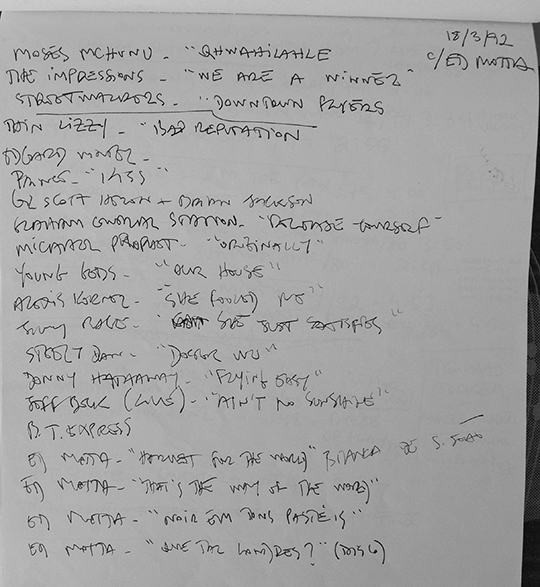 18/3/92
c/ ED MOTTA
MOSES MCHUNU - "QHWAHILAHLE
THE IMPRESSIONS - "WE ARE A WINNER"
STREETWALKERS - "DOWNTOWN FLYERS
THIN LIZZY - "BAD REPUTATION
EDGARD
PRINCE - "1999"
GIL SCOTT HERON + BRIAN JACKSON
GRAHAM CENTRAL STATION - "RELEASE YOURSELF"
MICHAEL PROPHET - "ORIGINALLY"
YOUNG GODS - "OUR HOUSE"
ALEXIS KORNER - "SHE FOOLED ME"
JIMMY PAGE - "SHE JUST SATISFIES"
STEELY DAN - "DOCTOR WU"
DONNY HATHAWAY - "FLYING EASY"
JEFF BECK (LIVE) - "AIN'T NO SUNSHINE"
B.T. EXPRESS
ED MOTTA - "HARVEST FOR THE WORLD" BIANCA DE S. JOÃO
ED MOTTA - "THAT'S THE WAY OF THE WORLD"
ED MOTTA - "NOIR EM TONS PASTÉIS"
ED MOTTA - "QUE TAL LONDRES?"